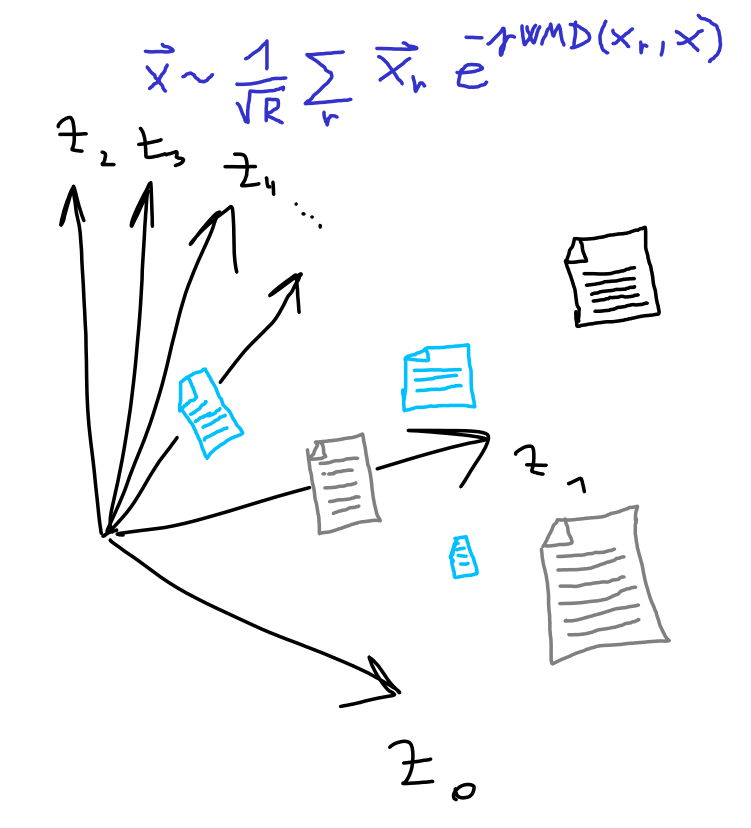 x⃗ ~ 1/√R ∑_r x⃗_r e^{-γWMD(x_r, x)}
z_2 z_3 z_4 ...
z_1
z_0